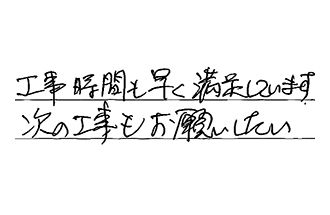 工事時間も早く満足しています
次の工事もお願いしたい